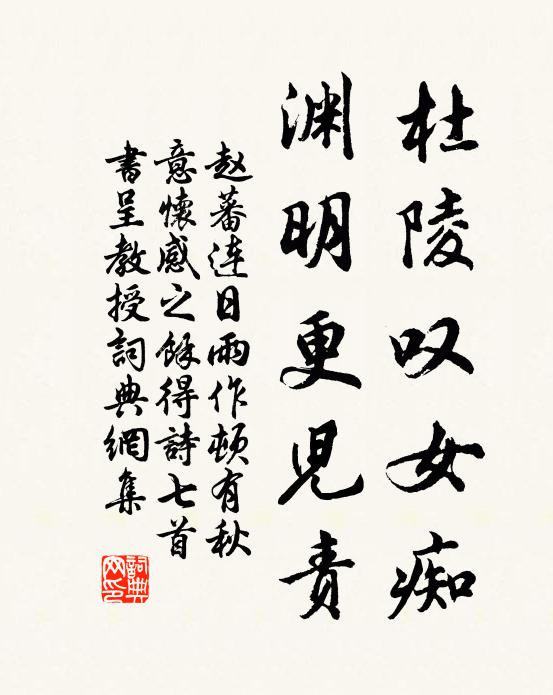 杜陵叹女痴
渊明更児责
赵蕃连日雨作顿有秋
意怀感之馀得诗七首
书呈教授词典网集
词典网印